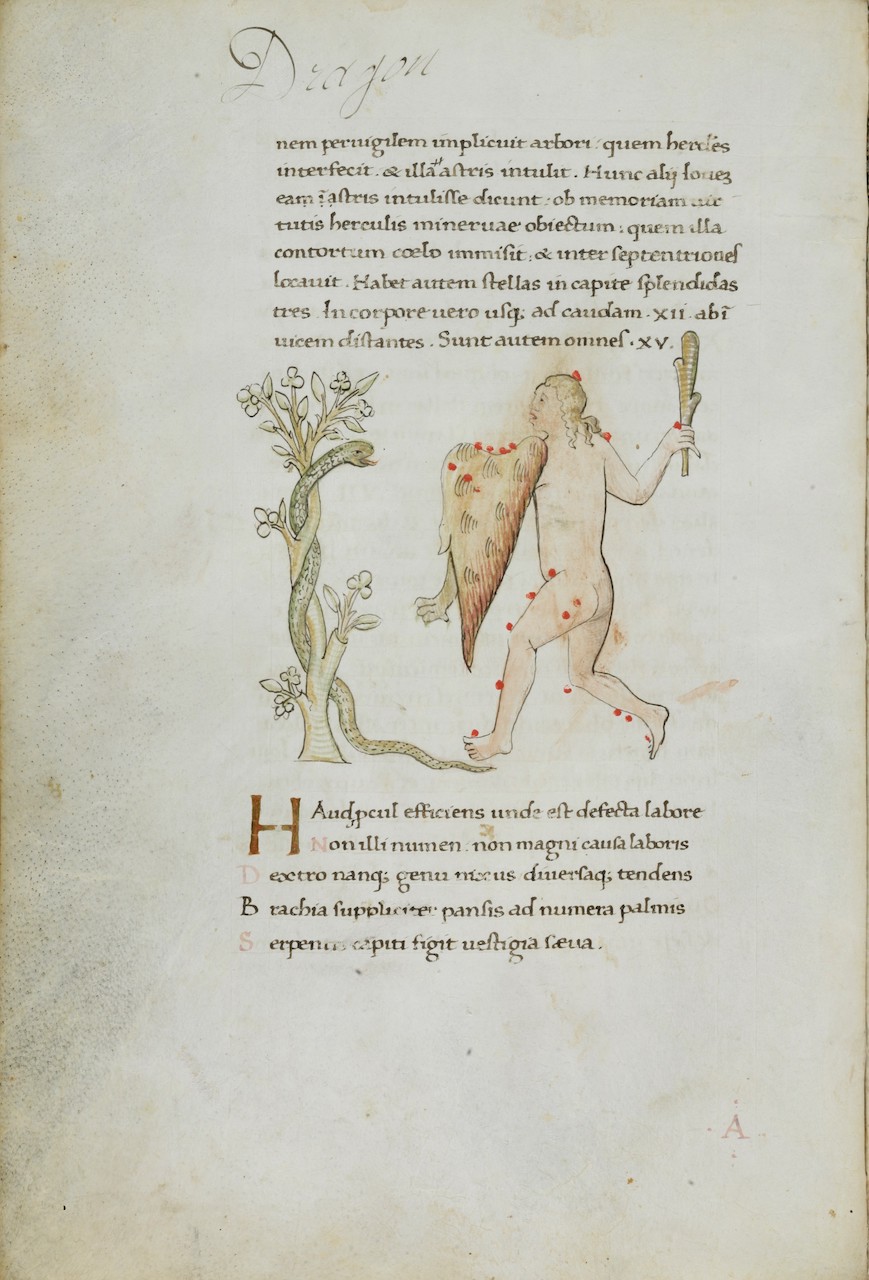 Dragon
nem peruigilem implicuit arbori. quem hercl̄es
interfecit. & illa astris intulit. Hunc alij Iouez
eam ī astris intulisse dicunt: ob memoriam
tutis herculis mineruae obiectum: quem illa
contortum coelo immisit: & inter septentriones
locauit. Habet autem stellas in capite splendidas
tres In corpore uero usq; ad caudam. xii. abī
uicem distantes. Sunt autem omnes. xv.
HAud ꝓcul efficiens unde est defecta labore
Non illi numen. non magni causa laboris
Dextro nanq; genu nixus diuersaq; tendens
Brachia suppliciter pansis ad numera palmis
Serpentis capiti figit uestigia sæua.
A